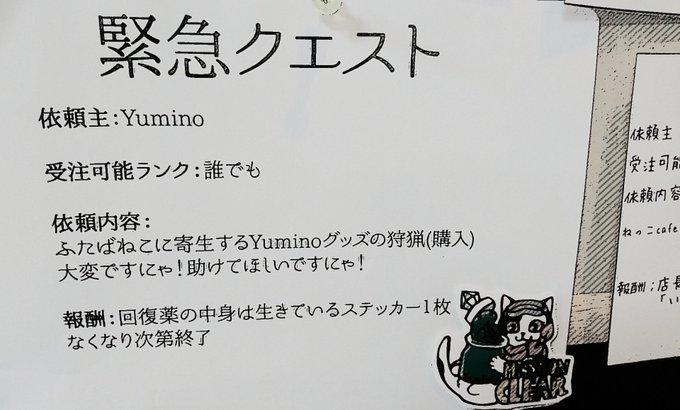 緊急クエスト
依頼主：Yumino
受注可能ランク：誰でも
依頼内容：
ふたばねこに寄生するYuminoグッズの狩猟(購入)
大変ですにゃ！助けてほしいですにゃ！
報酬：回復薬の中身は生きているステッカー1枚
なくなり次第終了
MISSION
CLEAR
依頼主
受注可能
依頼内容
ねっこcafe
報酬；店長
「い